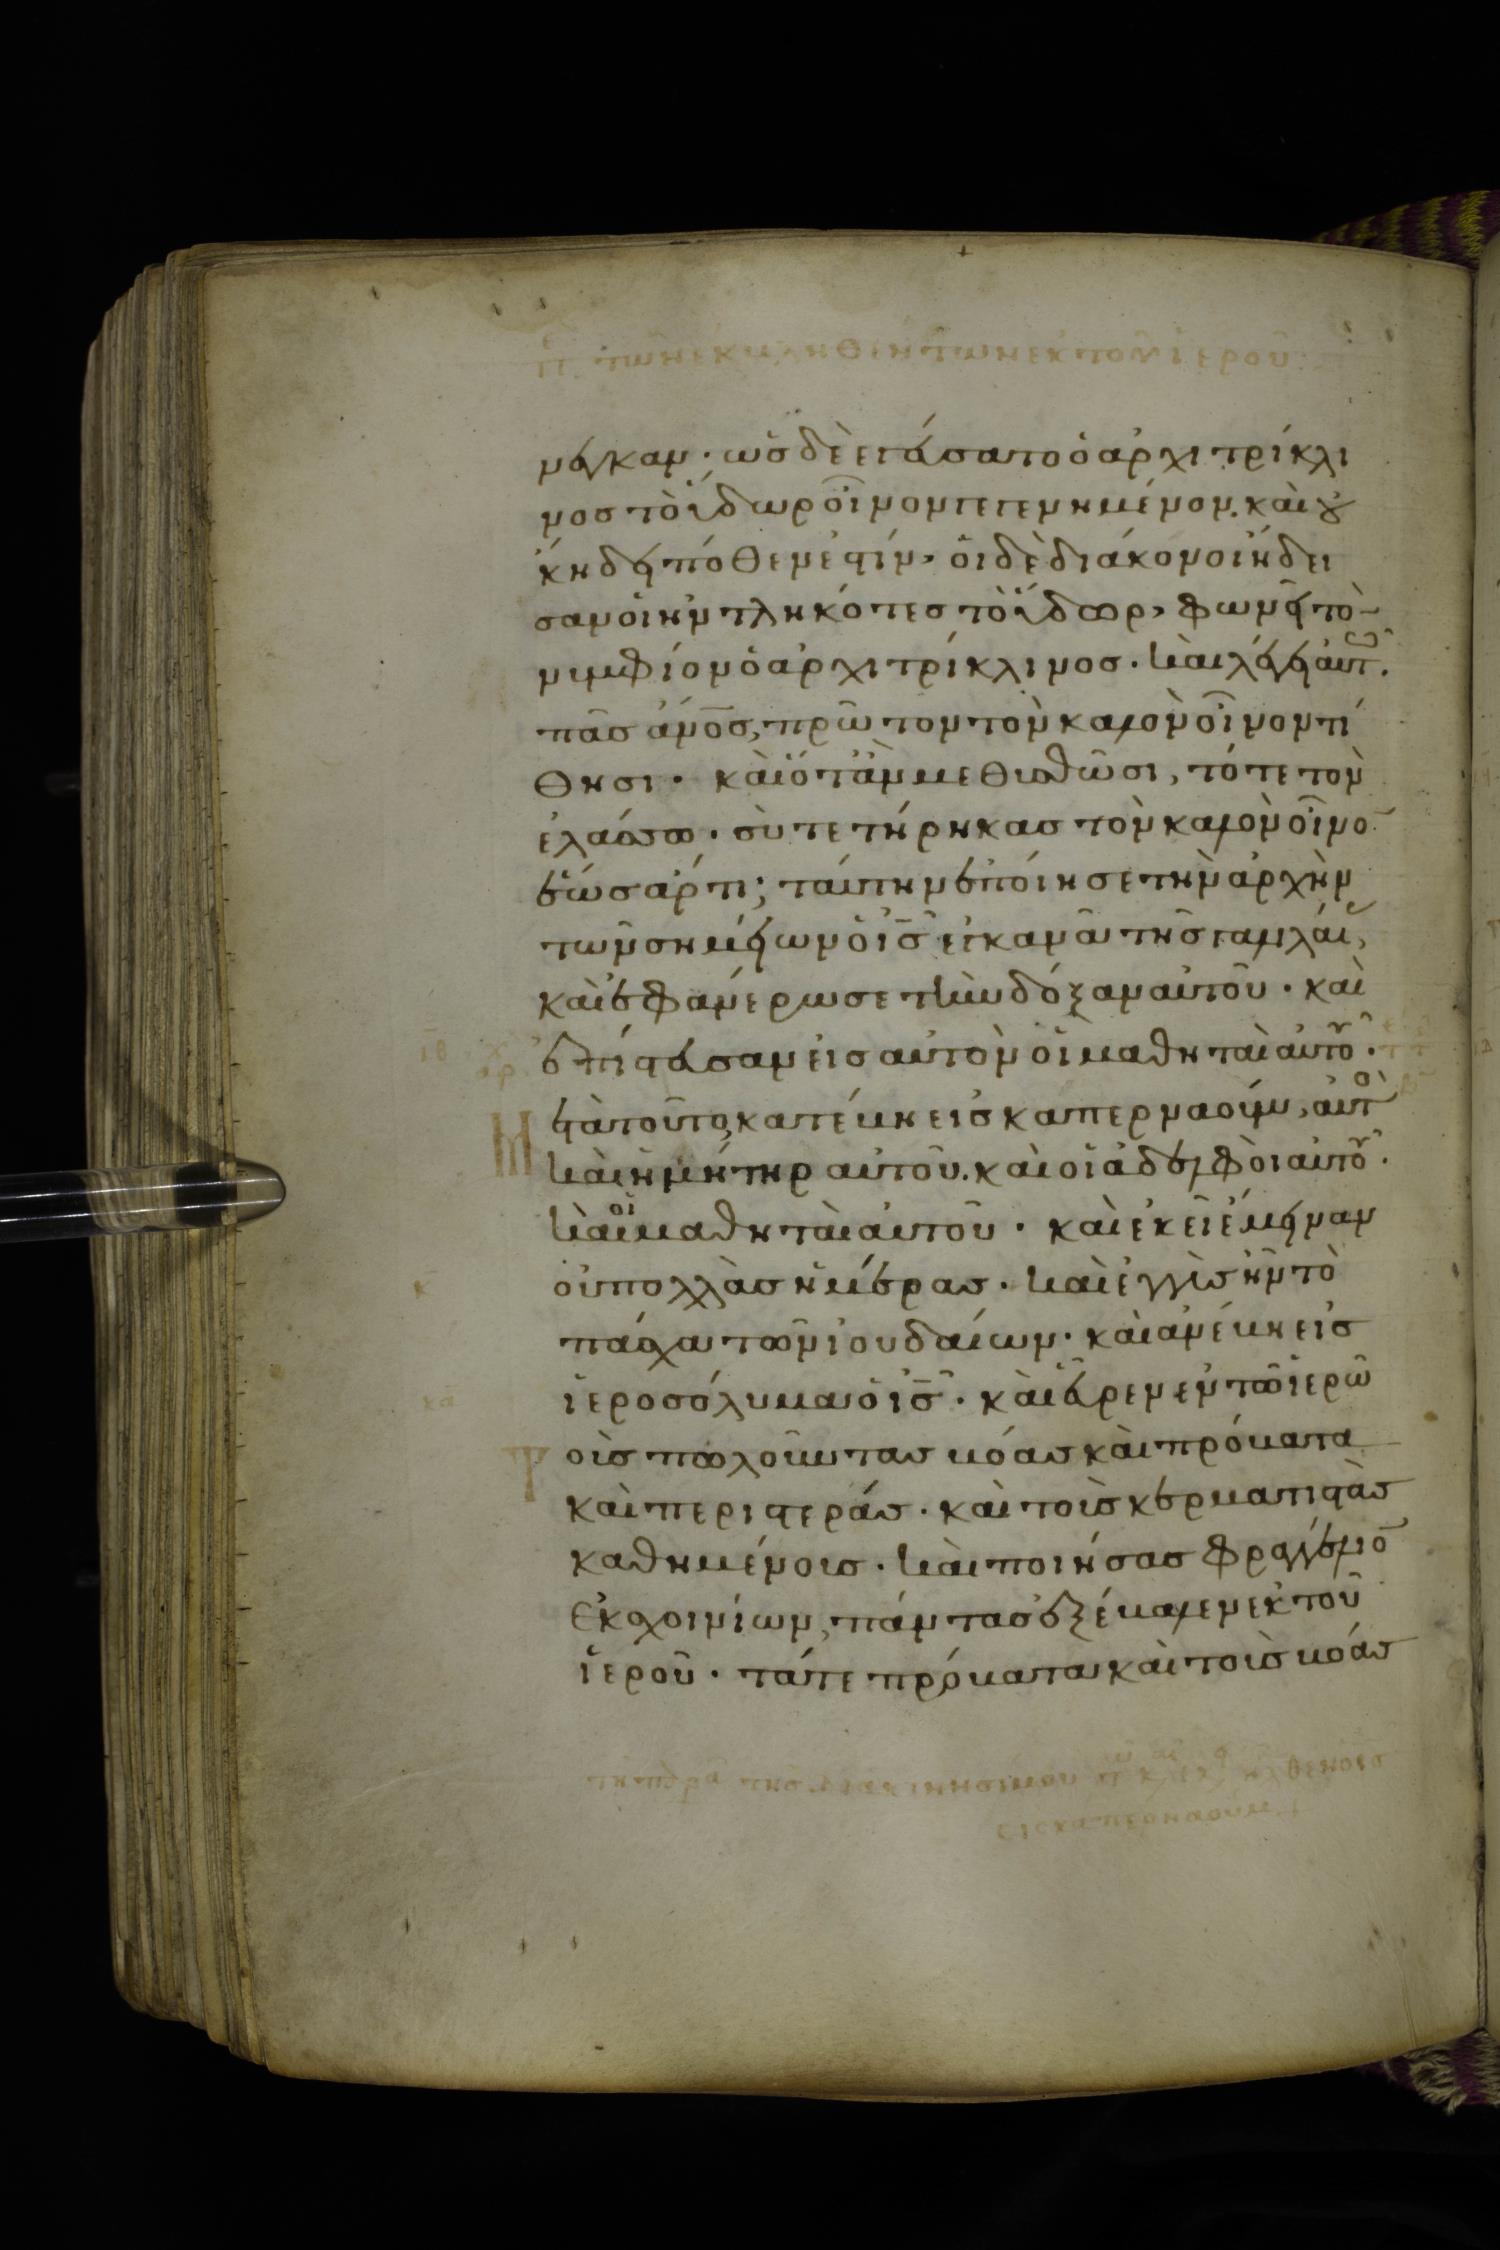 π τῶν ἐκβληθέντων ἐκ τοῦ ἱεροῦ
νεγκαν· ὡς δὲ ἐγεύσατο ὁ ἀρχιτρίκλι
νος τὸ ὕδωρ οἶνον γεγενημένον. καὶ οὐ
κ ἤδει πόθεν ἐστίν, οἱ δὲ διάκονοι ἤδει
σαν οἱ ἠντληκότες τὸ ὕδωρ, φωνεῖ τὸ
νυμφίον ὁ ἀρχιτρίκλινος. καὶ λέγει αὐτῶ.
πᾶς ἄνος, πρῶτον τὸν καλὸν οἶνον τί
θησι· καὶ ὅταν μεθυσθῶσι, τότε τὸν
ἐλάσσω. σὺ τετήρηκας τὸν καλὸν οἶνο
ἕως ἄρτι; ταύτην ἐποίησε τὴν ἀρχὴν
τῶν σημείων ὁ ις ἐν κανᾶ τῆς γαλιλαί,
καὶ ἐφανέρωσε τὴν δόξαν αὐτοῦ. καὶ
ιθ ἐπίστευσαν εἰς αὐτὸν οἱ μαθηταὶ αὐτοῦ.
Μετὰ τοῦτο, κατέβη εἰς καπερναούμ, αὐτὸ
καὶ ἡ μήτηρ αὐτοῦ. καὶ οἱ ἀδελφοὶ αὐτοῦ.
καὶ οἱ μαθηταὶ αὐτοῦ. καὶ ἐκεῖ ἔμειναν
κ οὐ πολλὰς ἡμέρας. καὶ ἐγγὺς ἦν τὸ
πάσχα τῶν ἰουδαίων. καὶ ἀνέβη εἰς
κα ἱεροσόλυμα ὁ ις. καὶ εὗρεν ἐν τῶ ἱερῶ
Τοὺς πωλοῦντας βόας καὶ πρόβατα
καὶ περιστεράς. καὶ τοὺς κερματιστὰς
καθημένους. καὶ ποιήσας φραγγέλιο
ἐκ σχοινίων, πάντας ἐξέβαλεν ἐκ τοῦ
ἱεροῦ. τά τε πρόβατα καὶ τοὺς βόας
εἰς καπερναούμ